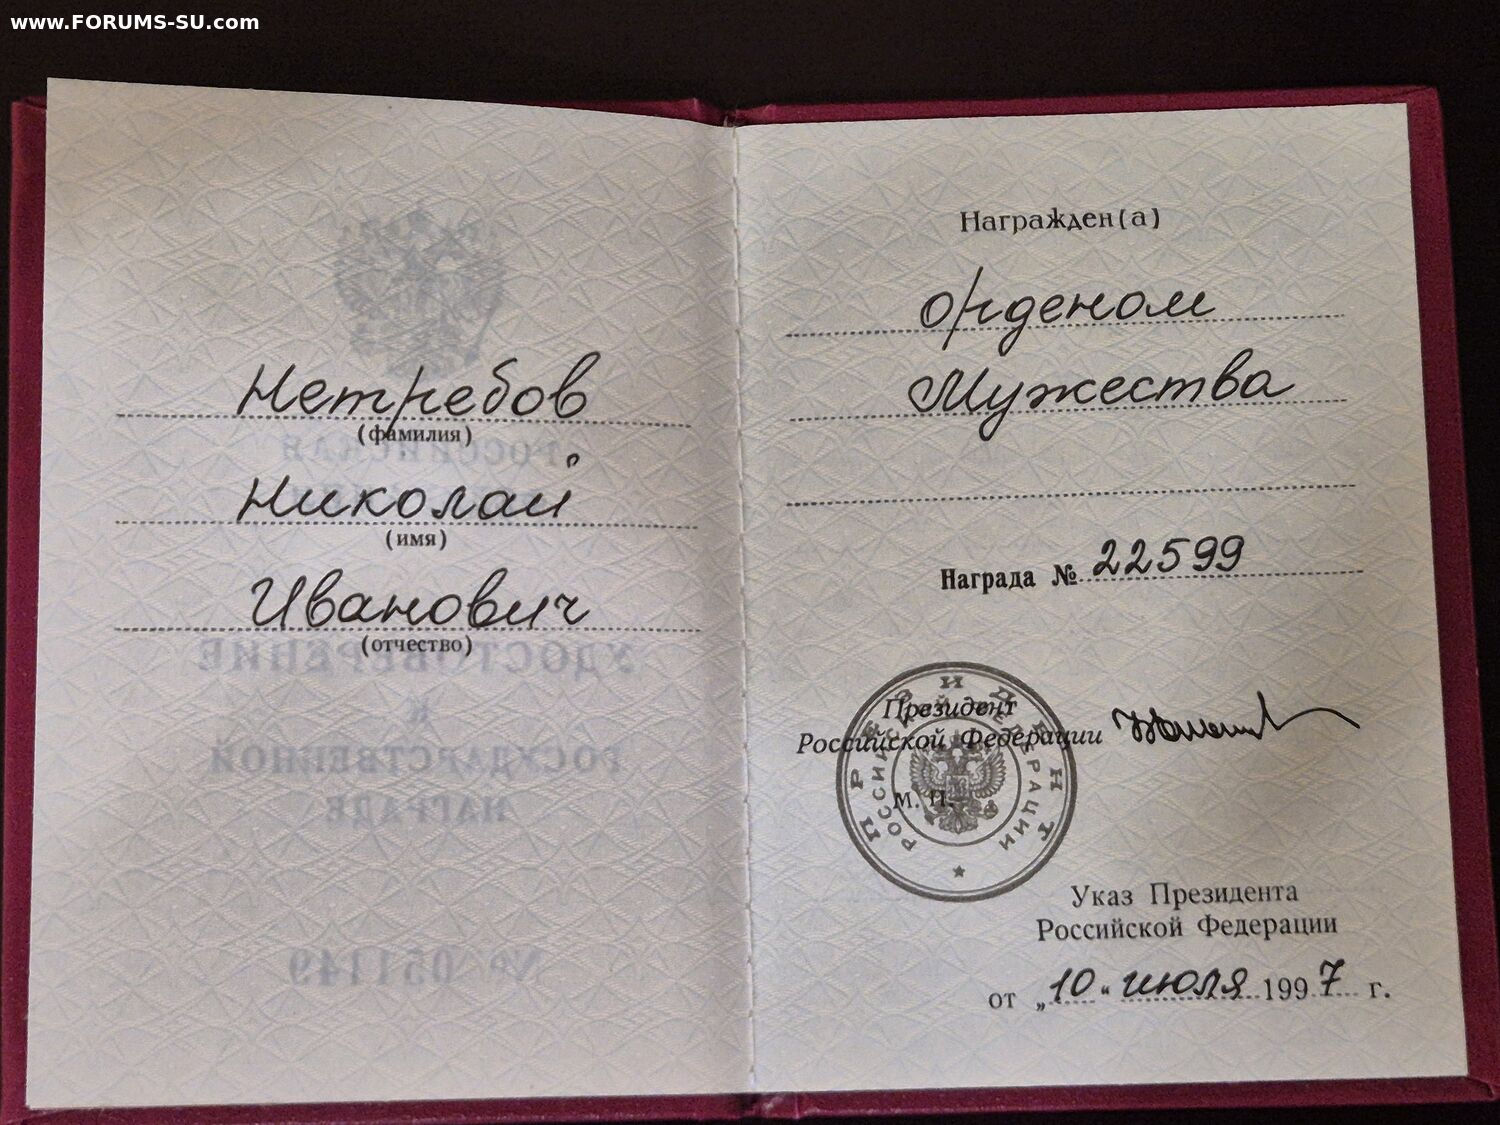 www.FORUMS-SU.com
Нетребов
(фамилия)
Николай
(имя)
Иванович
(отчество)
РОССИЙСКАЯ
УДОСТОВЕРЕНИЕ
К
ГОСУДАРСТВЕННОЙ
НАГРАДЕ
№ 051149
Награжден(а)
орденом
Мужества
Награда № 22599
Президент
Российской Федерации
М. П.
ПРЕЗИДЕНТ
РОССИЙСКОЙ ФЕДЕРАЦИИ
Указ Президента
Российской Федерации
от „10“ июля 1997 г.